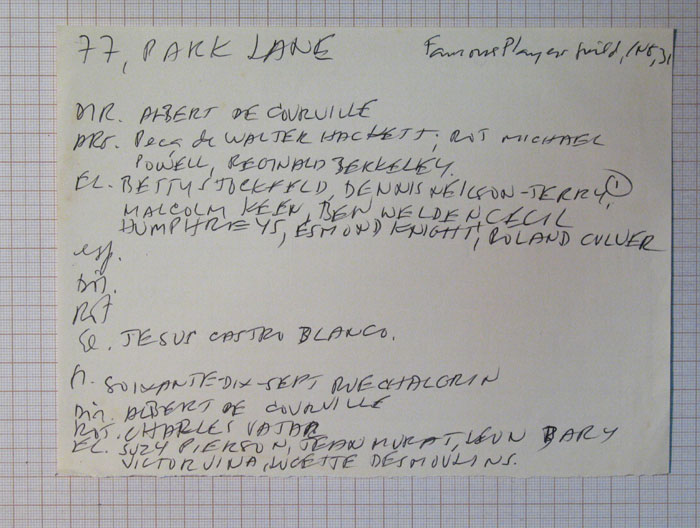 77, PARK LANE Famous Player Guild, ING, 31
DIR. ALBERT DE COURVILLE
ARG. Peça de WALTER HACKETT; ROT MICHAEL
POWELL, REGINALD BERKELEY.
EL. BETTY STOCKFELD, DENNIS NEILSON-TERRY, 1
MALCOLM KEEN, BEN WELDEN, CECIL
HUMPHREYS, ESMOND KNIGHT, ROLAND CULVER
esp.
Dir.
Rot
El. JESUS CASTRO BLANCO.
fr. SOIXANTE-DIX-SEPT RUE CHALGRIN
Dir. ALBERT DE COURVILLE
ROT. CHARLES VAJDA
EL. SUZY PIERSON, JEAN MURAT, LEON BARY
VICTOR VINA, LUCETTE DESMOULINS.